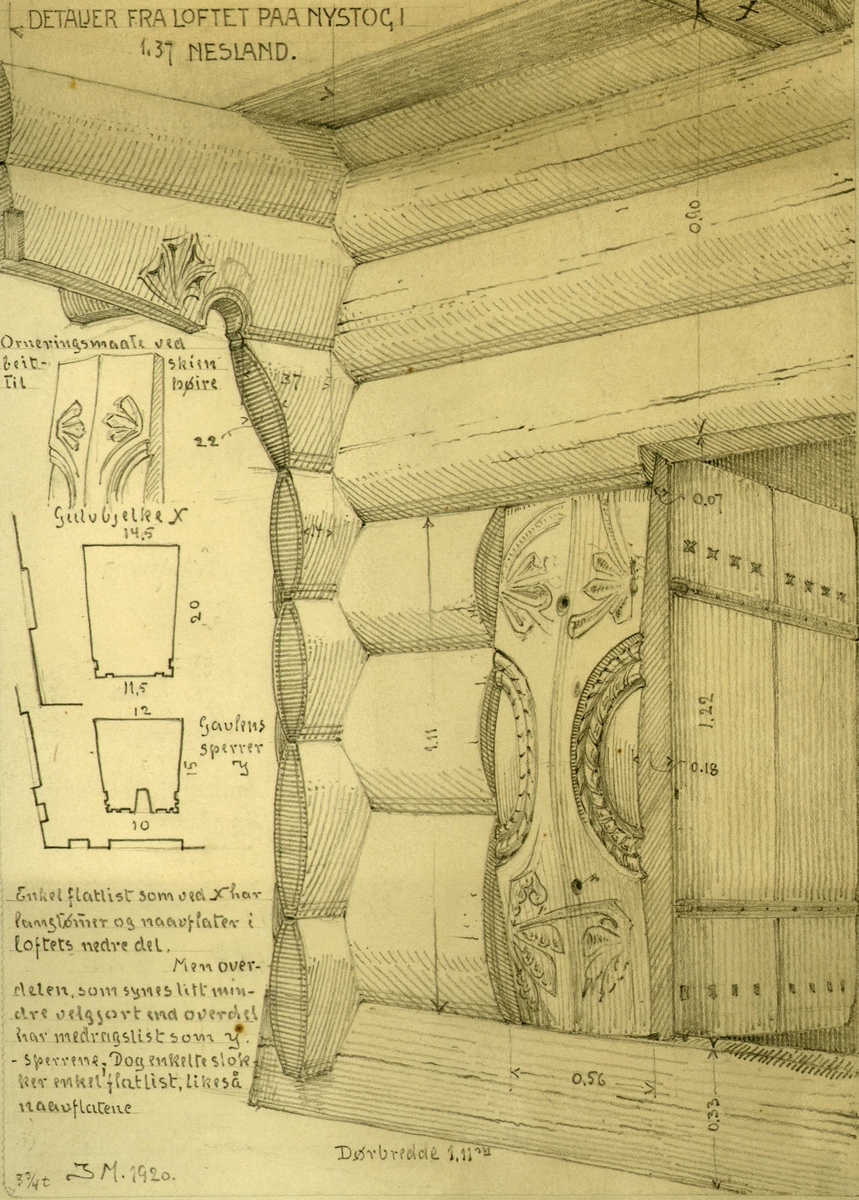 DETALJER FRA LOFTET PAA NYSTOG, I
1.37 NESLAND.
0,90
Orneringsmaate ved
beit-skien
til høire
37
22
14
0.07
Gulvbjelke X
14,5
20
11,5
12
Gavlens
sperrer
y
15
10
1,11
1,22
0.18
Enkel flatlist som ved X har
langtømer og naavflater i
loftets nedre del.
Men over-
delen, som synes litt min-
dre velgjort end overdel
har medragslist som y.
- sperrene; Dog enkelte stok-
ker enkel flatlist, likeså
naavflatene
0,56
0,33
Dørbredde 1,11 m
3¾ t JM. 1920.